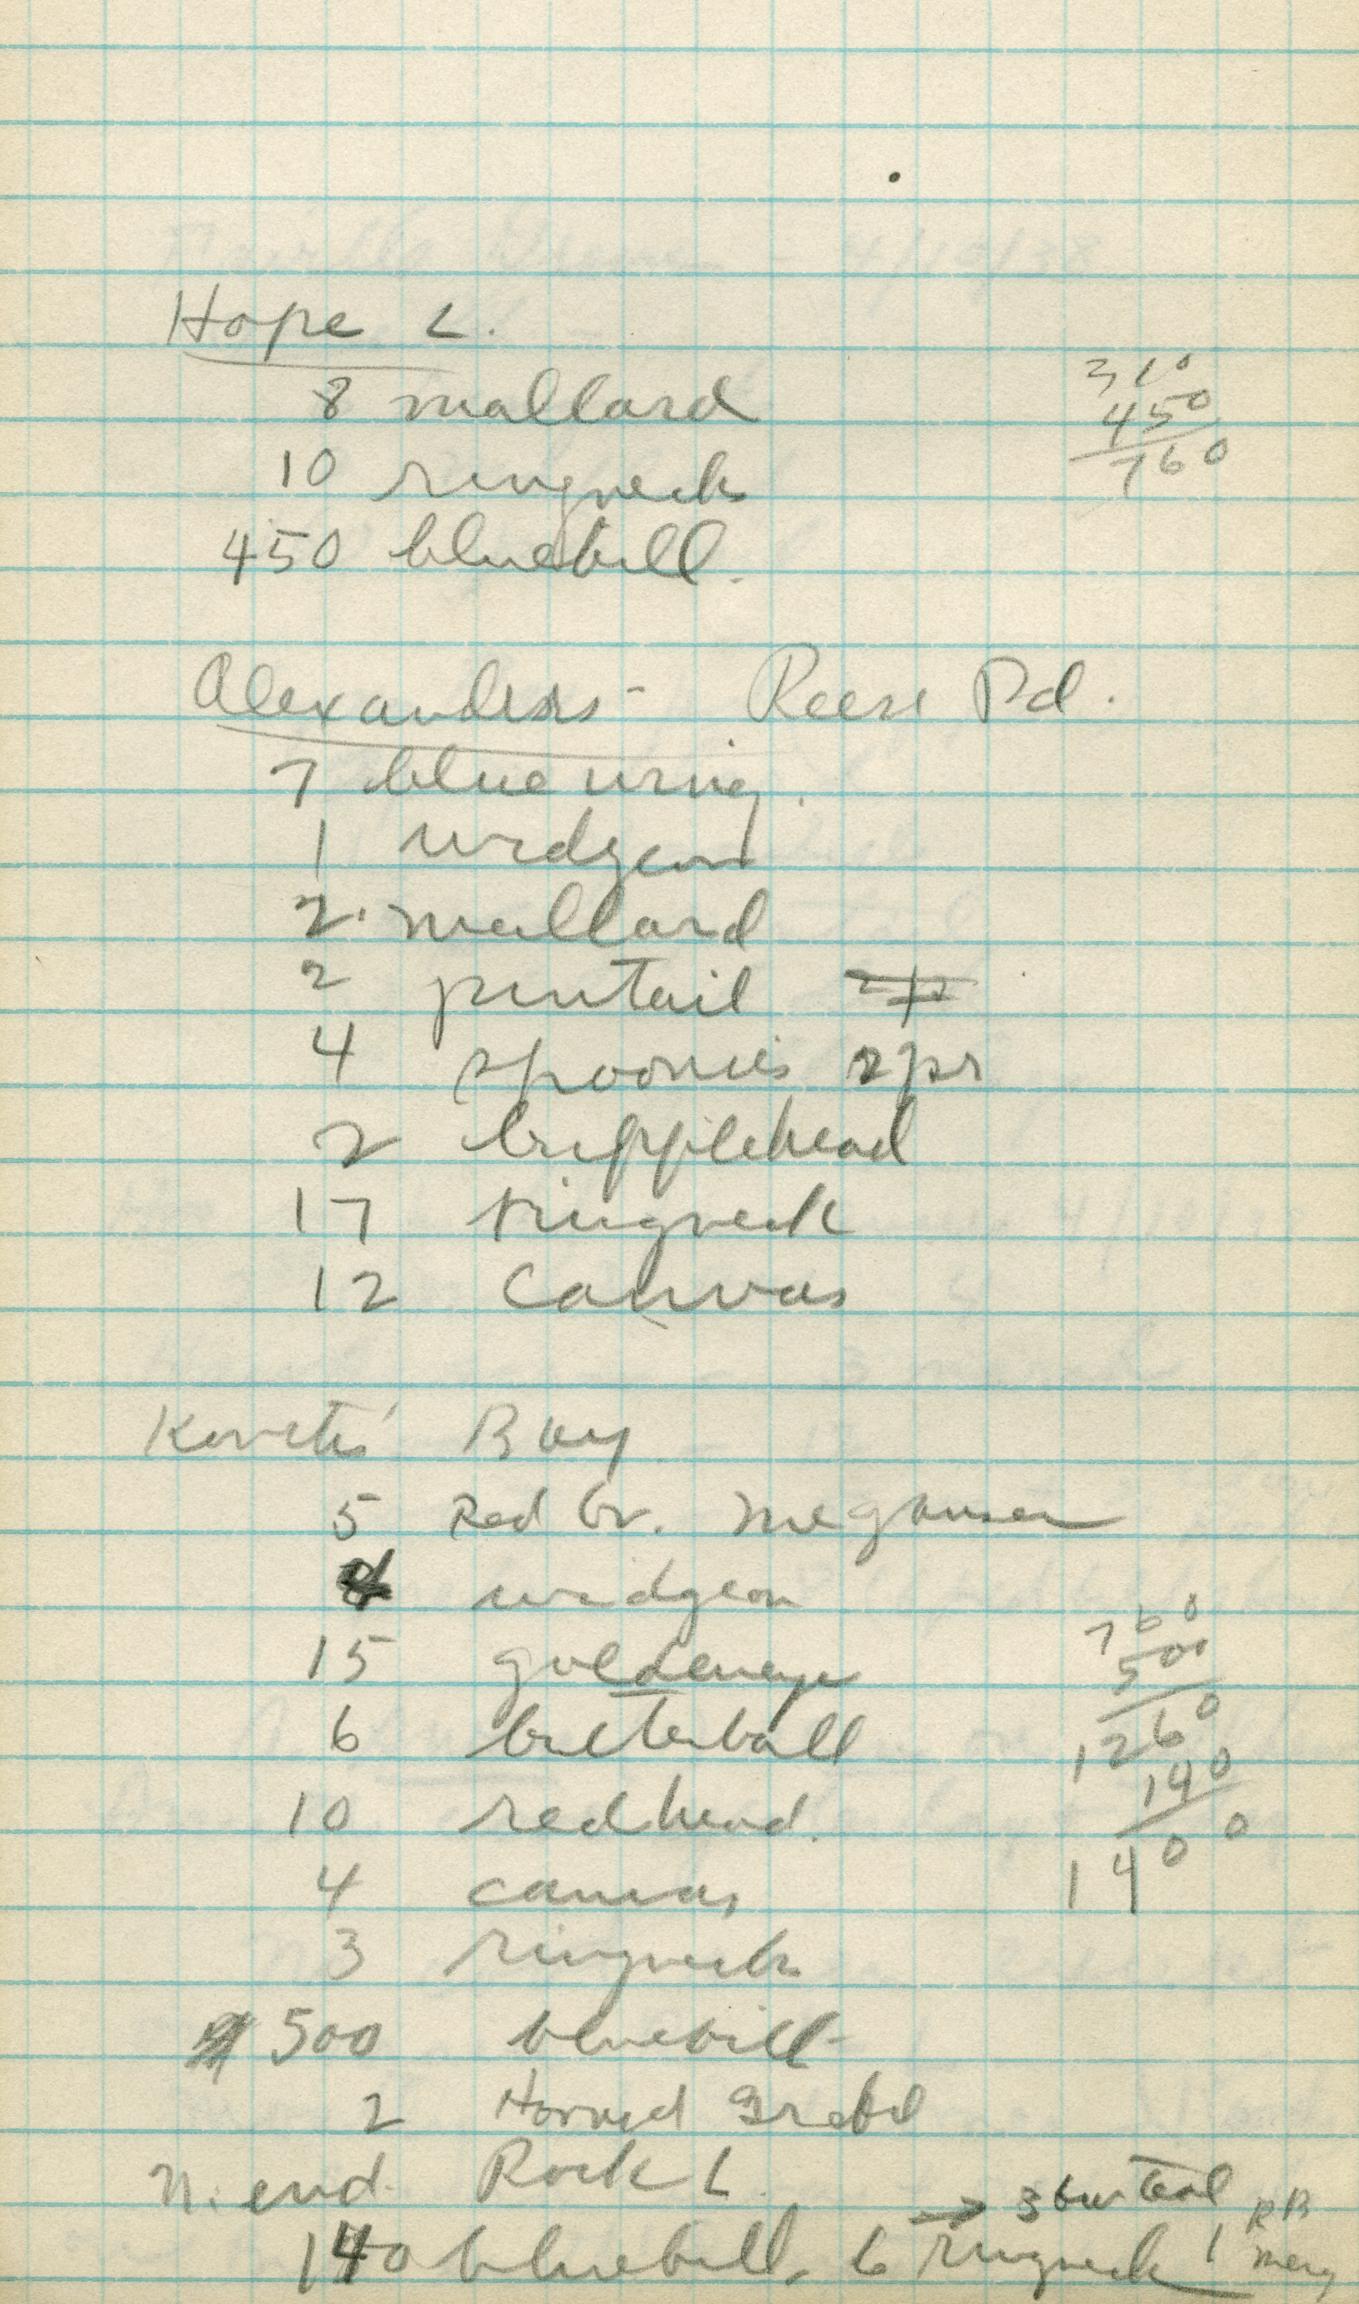 Hope L.
8 mallard
10 ringnecks
450 bluebill.
310
450
760
Alexanders - Reese Pd.
7 blue wing.
1 widgeon
2 mallard
2 pintail
4 spoonies 2 pr
2 bufflehead
17 ringneck
12 canvas
Bay
5 Red br. Meganser
widgeon
15 goldeneye
6 butterball
10 redhead.
4 canvas
3 ringnecks
500 bluebill
2 Horned Grebe
760
500
1260
140
1400
N. end. Rock L.
→ 3 bw teal
140 bluebill, 6 ringneck 1 RB
Merg